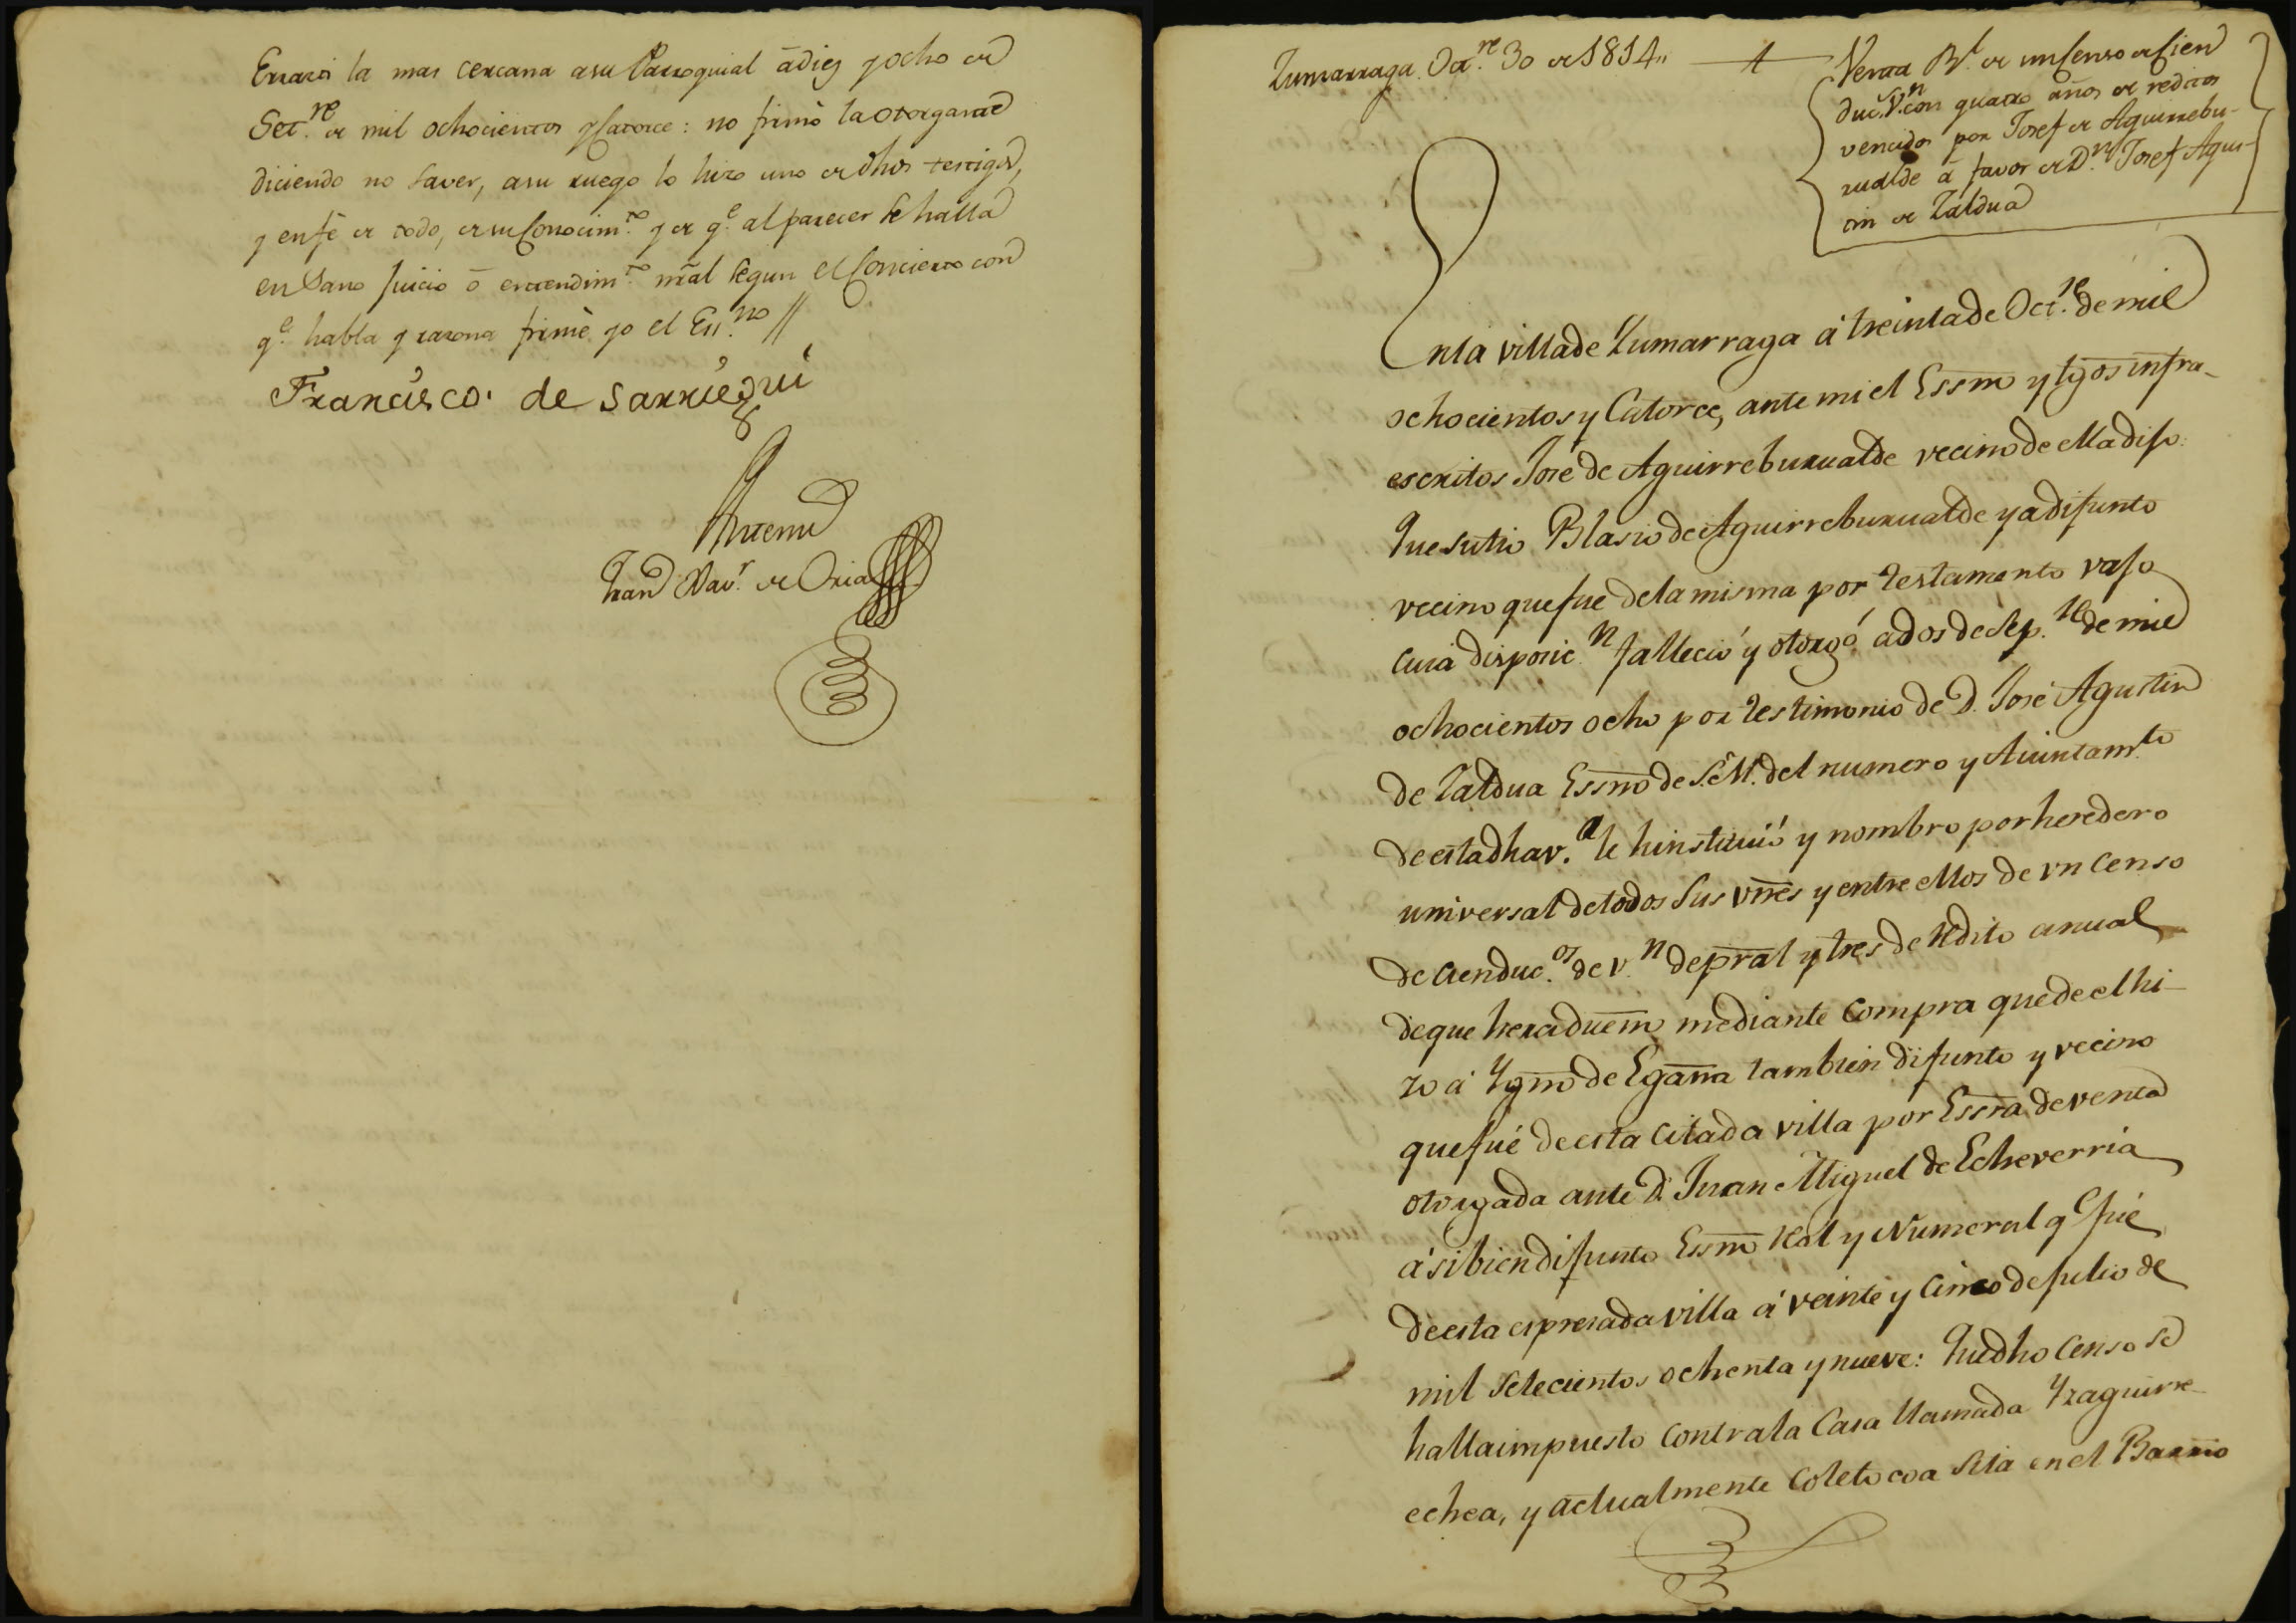 Errazti la mas cercana a su Parroquial á diez y ocho de
Set.re de mil ochocientos y Catorce: no firmó la otorgante
diciendo no saver, a su ruego lo hizo uno de dhos testigos,
y en fé de todo, de su Conocim.to y de q.e al parecer se halla
en Sano Juicio ó entendim.to nral segun el Concierto con
q.e habla y razona firmé yo el Ess.no //
Francisco de Sarriegui
Ante mi
Fran.co Xav.r de Oria
Zumarraga Oct.re 30 de 1814,, 1
Venta Rl. de un Censo de Cien
duc.s V.n con quatro años de reditos
vencidos por Josef de Aguirrebu-
rualde á favor de D.n Josef Agus-
tin de Zaldua
En la villa de Zumarraga á treinta de Oct.re de mil
ochocientos y Catorce, ante mi el Essno y tgos infra-
escritos José de Aguirreburualde vecino de ella dijo:
Que su tio Blasio de Aguirreburualde ya difunto
vecino que fue de la misma por testamento vajo
cuia disposic.n falleció y otorgó á dos de Sep.re de mil
ochocientos ocho por testimonio de D. José Agustin
de Zaldua Essno de S.M. del numero y Aiuntam.to
de esta dha v.a le hinstituió y nombro por heredero
universal de todos sus vnes y entre ellos de vn censo
de cien duc.os de v.n de pral y tres de redito anual
de que hera dueño mediante compra que de el hi-
zo á Ygno de Egaña tambien difunto y vecino
que fué de esta citada villa por Essra de venta
otorgada ante D. Juan Miguel de Echeverria
ásibien difunto Essno Rl y Numeral q.e fué
de esta espresada villa á veinte y cinco de julio de
mil setecientos ochenta y nueve: Que dho Censo se
halla impuesto contra la Casa llamada Yzaguirre
echea, y actualmente Coletocoa sita en el Barrio